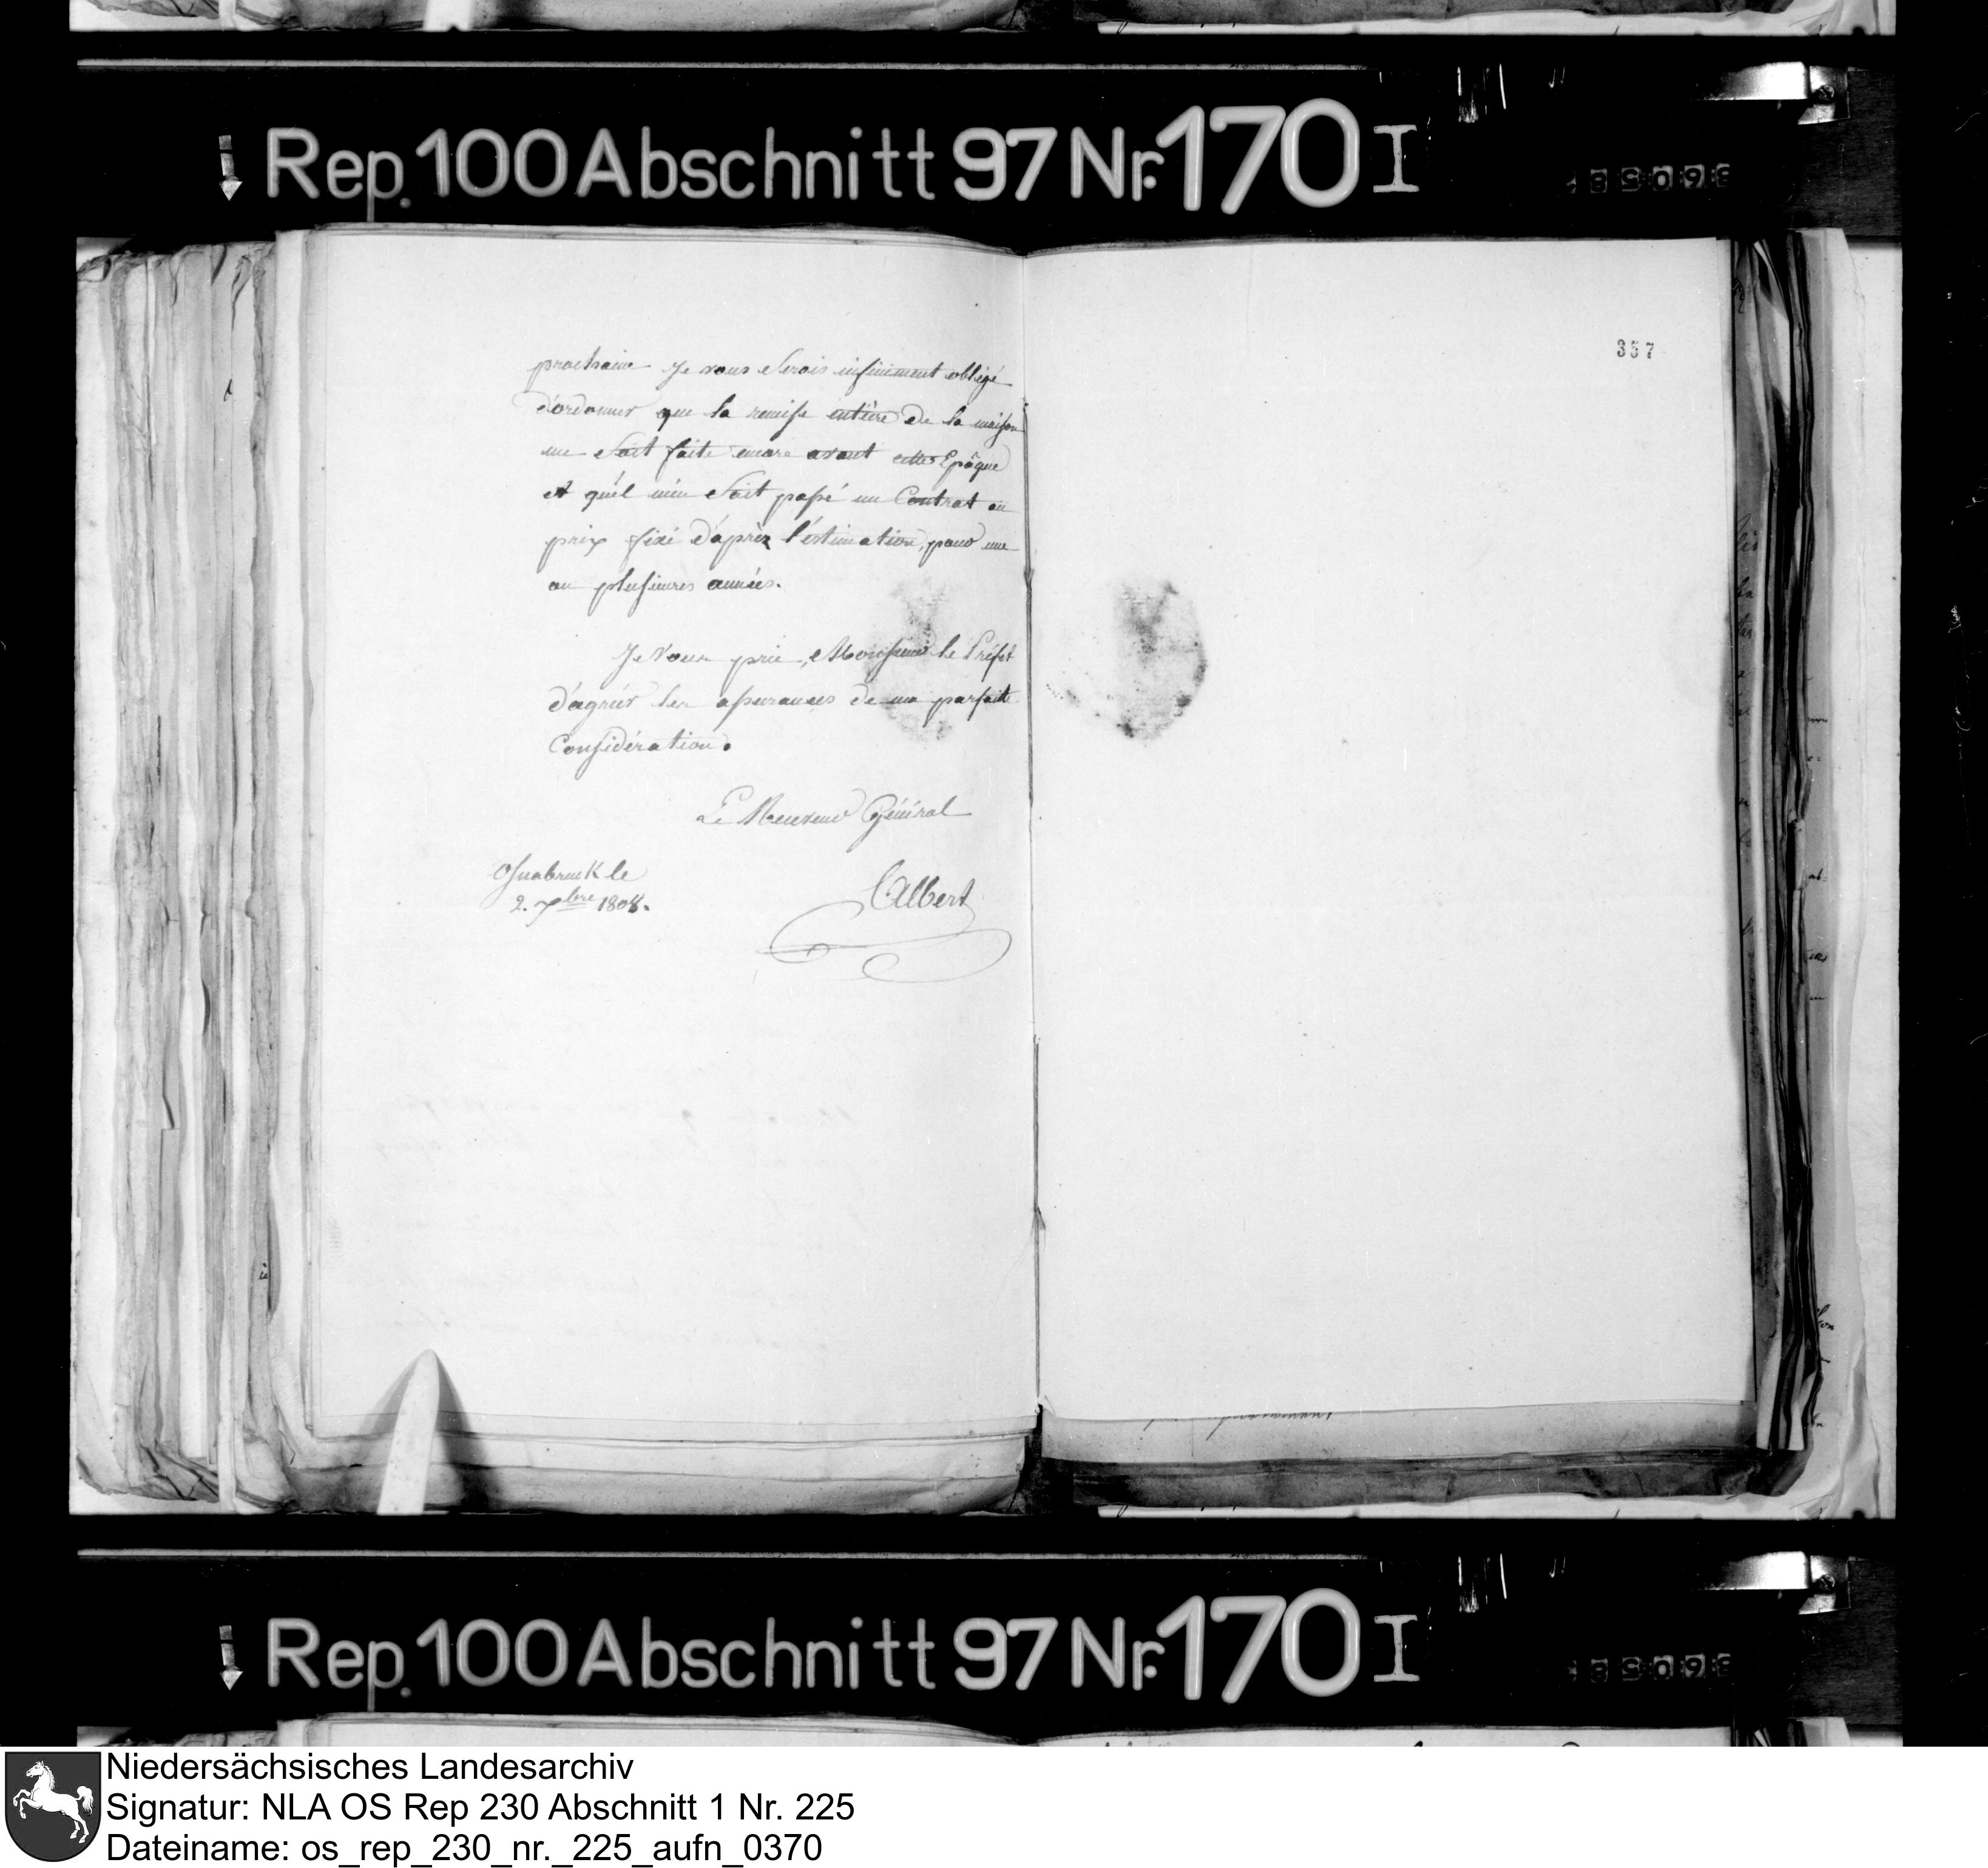 Rep. 100 Abschnitt 97 Nr. 170 I
357
prochaine Je vous serois infiniment obligé
d'ordonner que la remise entière de la maison
me soit faite encore avant cette Epôque
et qu'el m'en soit passé un Contrat au
prix fixé d'après l'éstimation, pour une
ou plusieures années.
Je Vous prie, Monsieur le Préfet
d'agréér les assurances de ma parfaite
Considération.
Le Receveur Général
Osnabruck le
2. 7bre 1808.
CAlbert
Rep. 100 Abschnitt 97 Nr. 170 I
Niedersächsisches Landesarchiv
Signatur: NLA OS Rep 230 Abschnitt 1 Nr. 225
Dateiname: os_rep_230_nr._225_aufn_0370